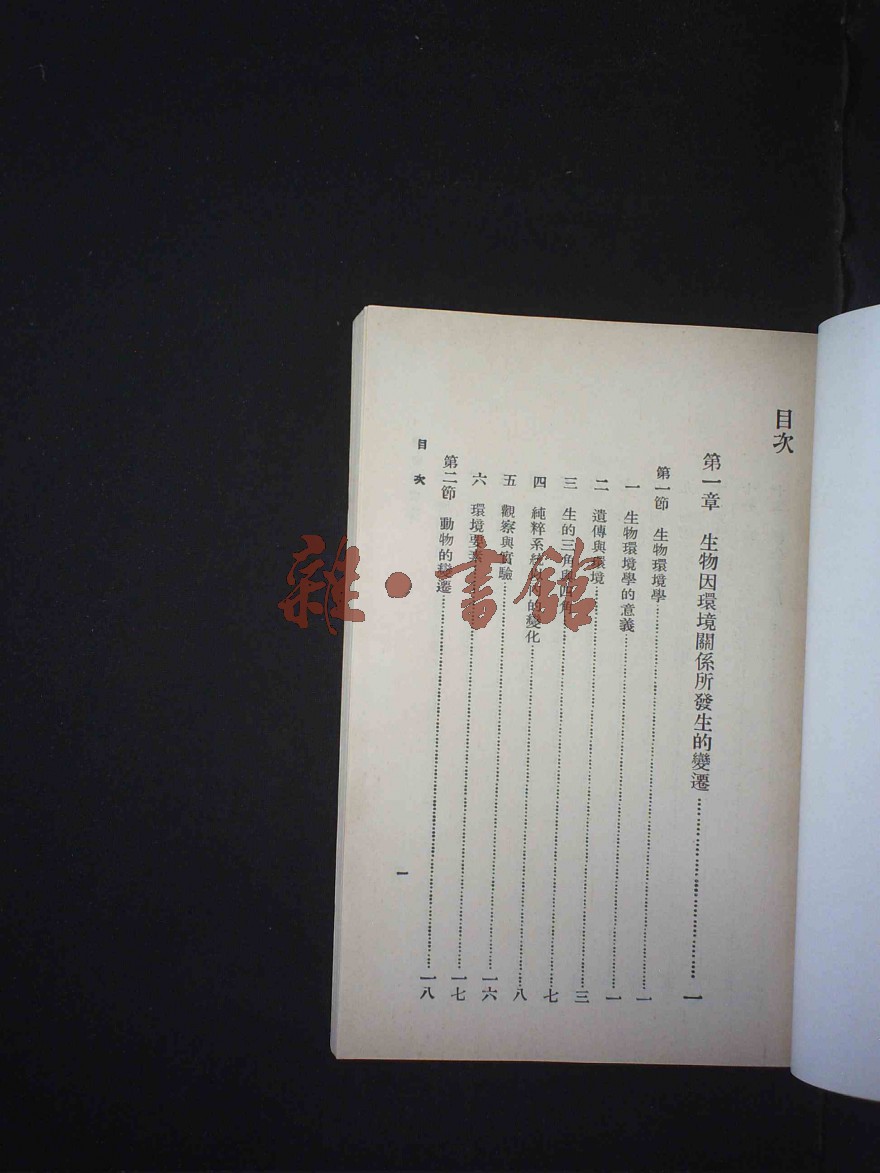 目次
第一章 生物因環境關係所發生的變遷……一
第一節 生物環境學……一
一 生物環境學的意義……一
二 遺傳與環境……三
三 生的三角與四角……七
四 純粹系統以內的變化……八
五 觀察與實驗……一六
六 環境要素……一七
第二節 動物的變遷……一八
目次 一
雜·書館